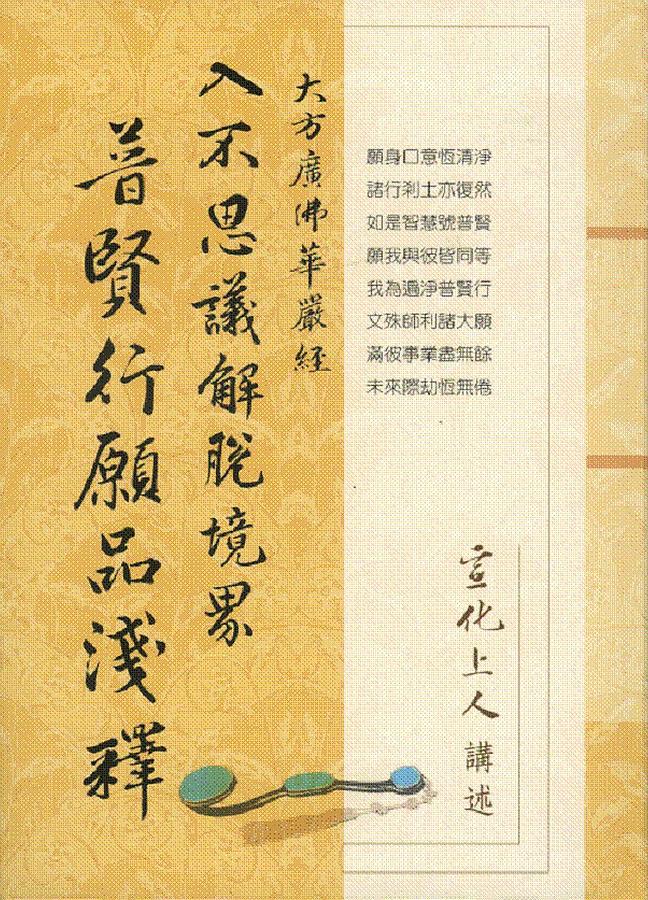 大方廣佛華嚴經
入不思議解脫境界
普賢行願品淺釋
願身口意恆清淨
諸行剎土亦復然
如是智慧號普賢
願我與彼皆同等
我為遍淨普賢行
文殊師利諸大願
滿彼事業盡無餘
未來際劫恆無倦
宣化上人講述